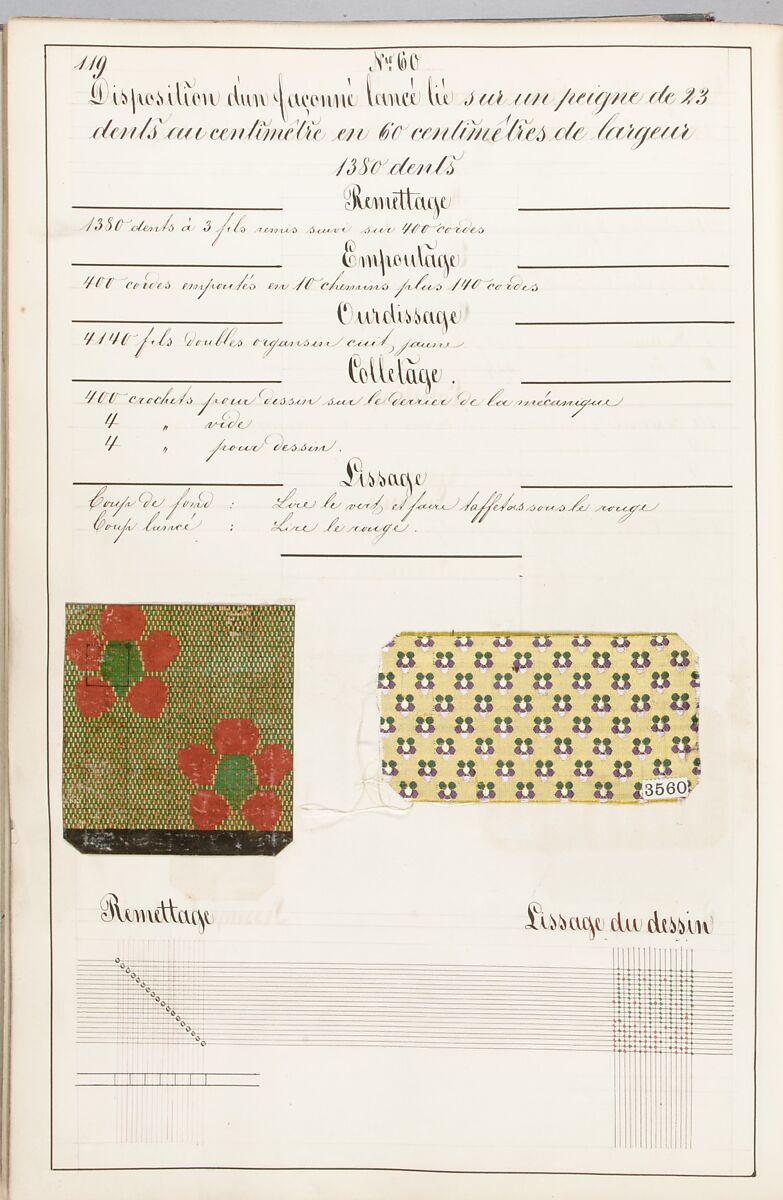 119
N° 60
Disposition d'un façonné lancé lié sur un peigne de 23
dents au centimêtre en 60 centimêtres de largeur
1380 dents
Remettage
1380 dents à 3 fils remis suivi sur 400 cordes
Empoutage
400 cordes empoutés en 10 chemins plus 140 cordes
Ourdissage
4140 fils doubles organsin cuit, jaune
Colletage.
400 crochets pour dessin sur le derrier de la mécanique
4 " vide
4 " pour dessin.
Lissage
Coup de fond : Lire le vert et faire taffetas sous le rouge
Coup lancé : Lire le rouge.
3560
Remettage
Lissage du dessin